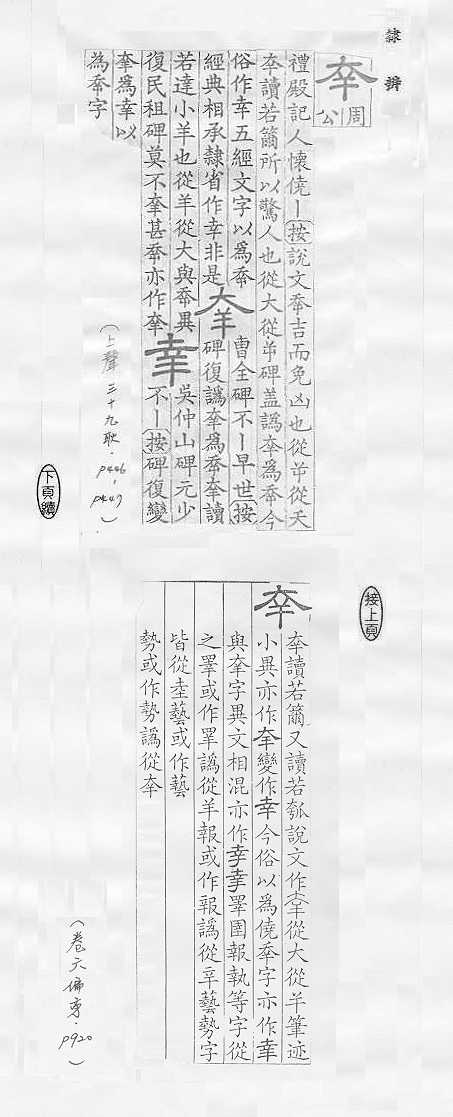 隸辨
㚔
周公
禮殿記人懷僥丨按說文𠂷吉而免凶也從屰從夭
㚔讀若籋所以驚人也從大從𢆉碑盖譌㚔為𠂷今
俗作幸五經文字以為𠂷
經典相承隸省作幸非是
羍
曹全碑不丨早世按
碑復譌羍為𠂷羍讀
若達小羊也從羊從大與𠂷異
復民租碑莫不羍甚𠂷亦作羍
幸
吳仲山碑元少
不丨按碑復變
羍為幸以
為𠂷字
(上聲三十九耿.p446,p447)
下頁續
接上頁
㚔
㚔讀若籋又讀若瓠說文作㚔從大從𢆉筆迹
小異亦作㚔變作幸今俗以為僥𠂷字亦作幸
與羍字異文相混亦作幸幸睪圉報執等字從
之睪或作睪譌從羊報或作報譌從𦍒藝勢字
皆從坴藝或作藝
勢或作勢譌從㚔
(卷六偏旁.p920)